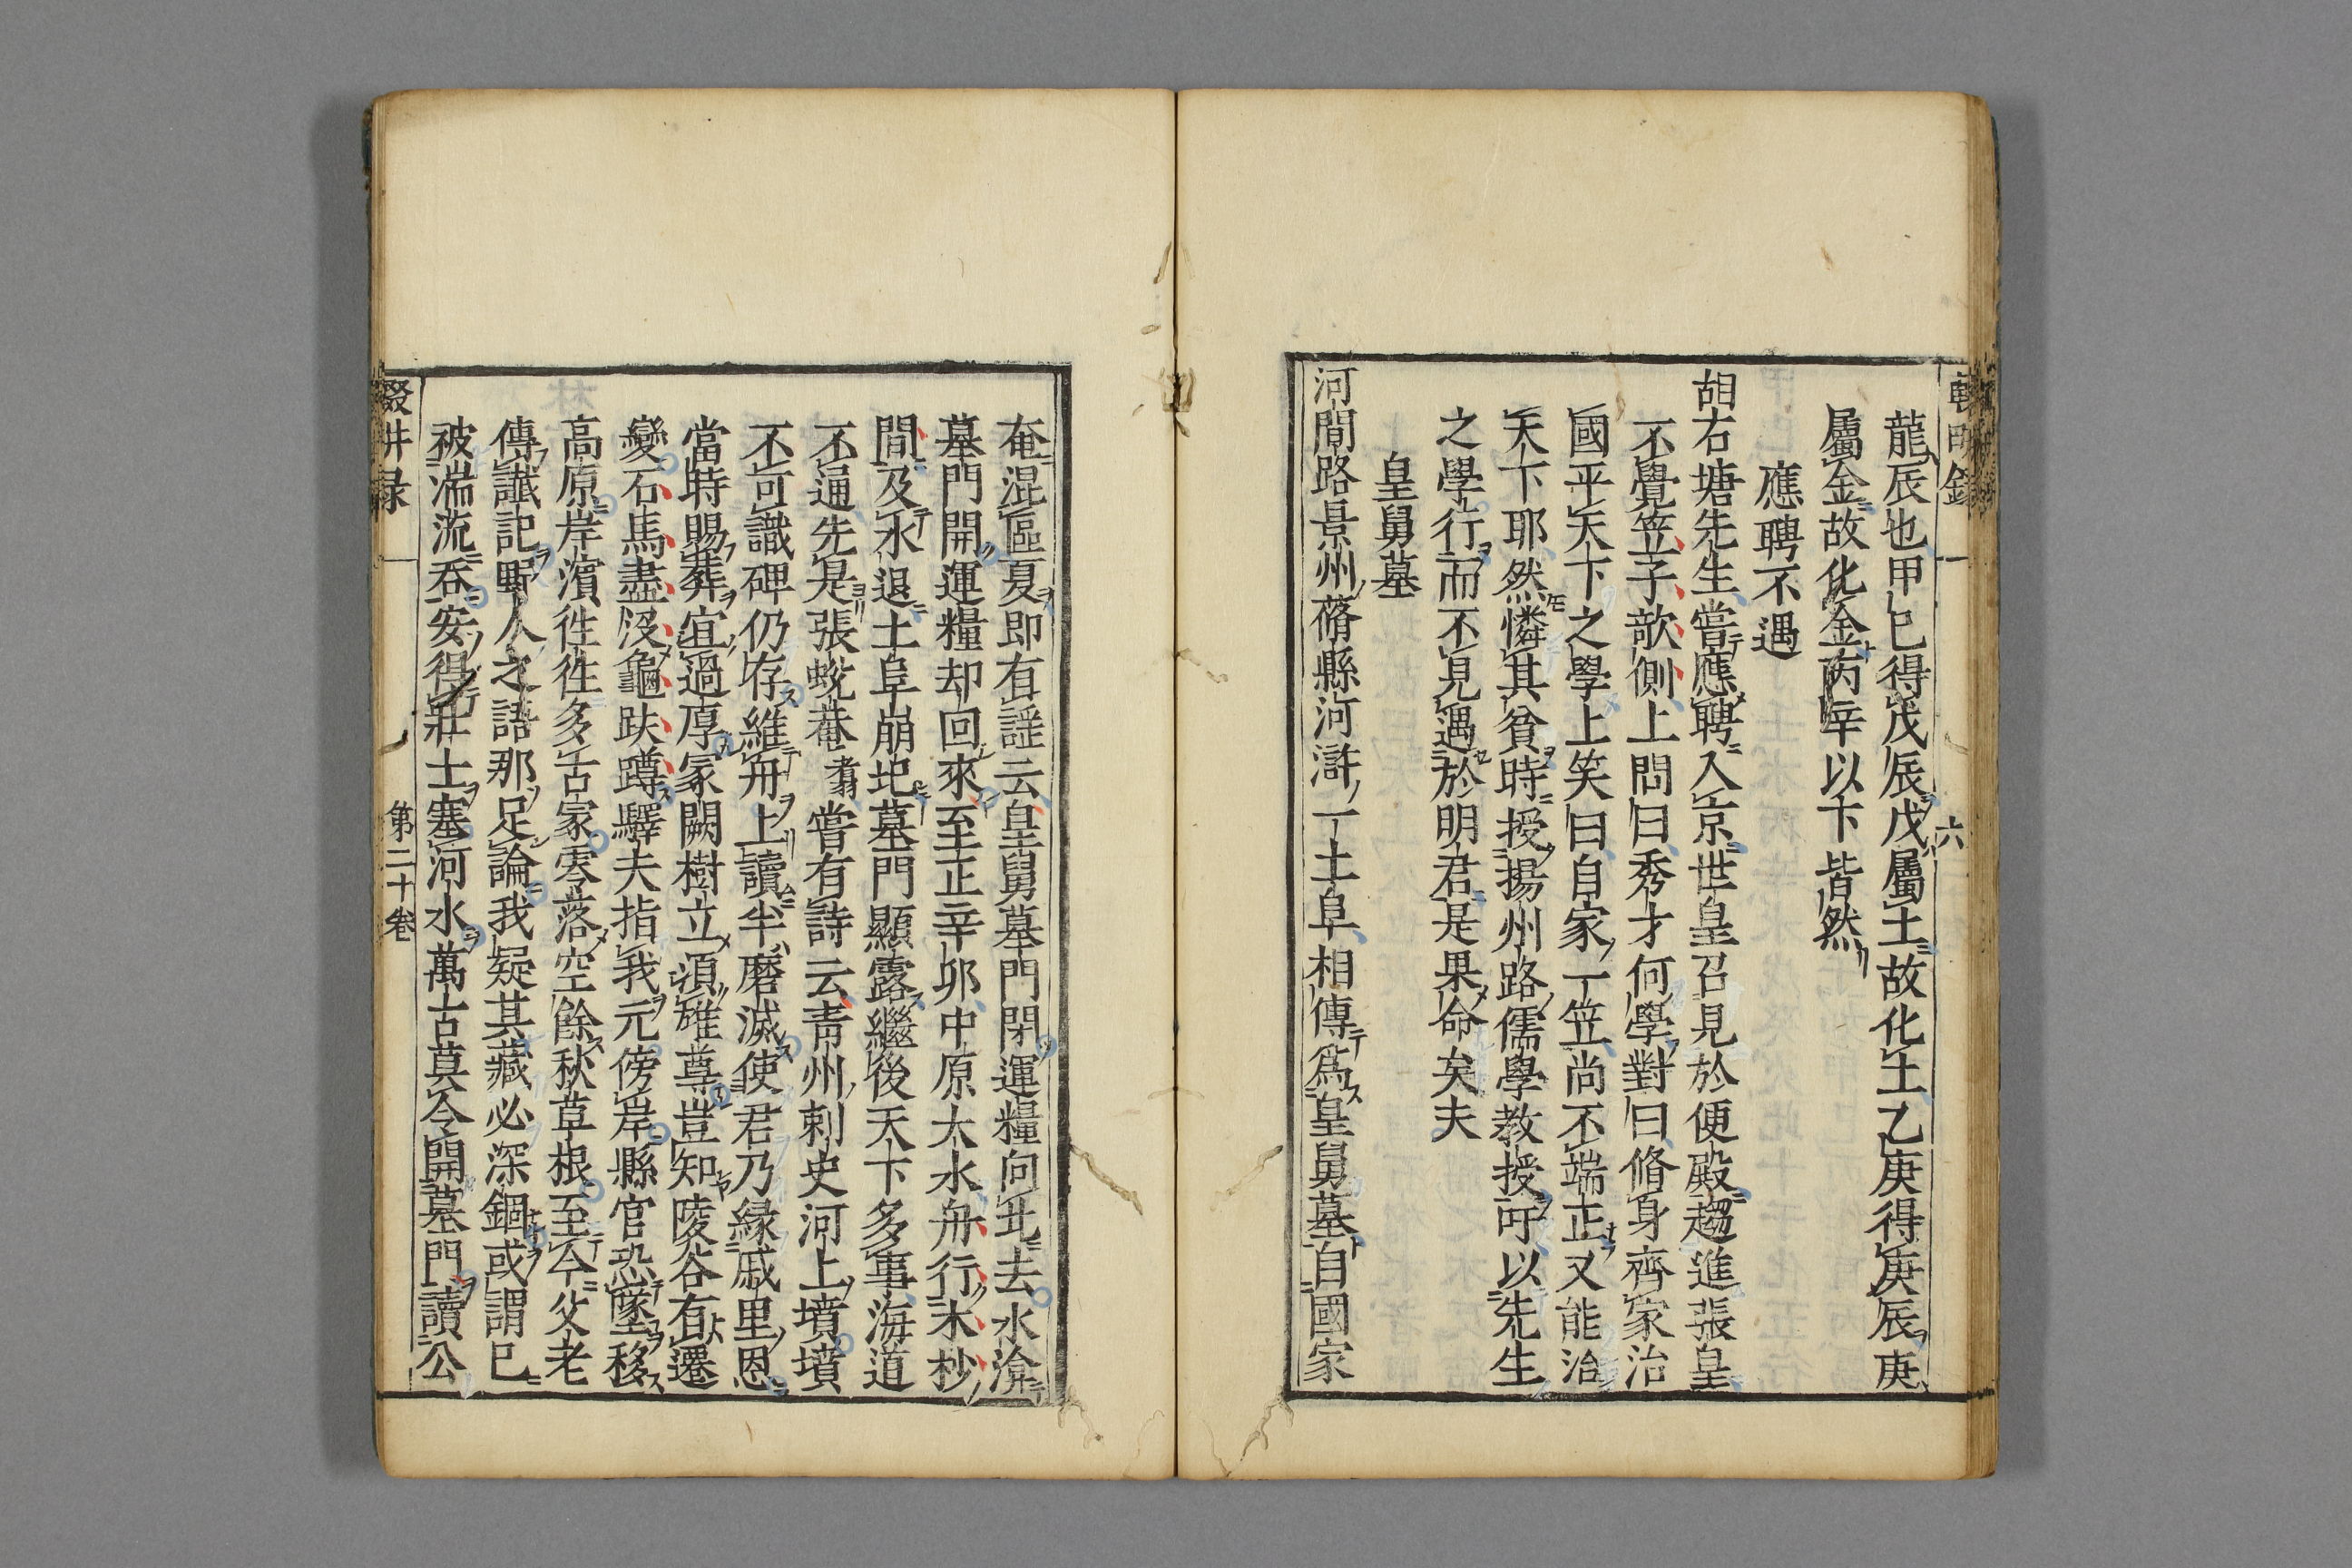 龍辰也甲巳得戊辰戊屬土故化土乙庚得庚辰庚
屬金故化金丙辛以下皆然
應聘不遇
胡石塘先生嘗應聘入京世皇召見於便殿趨進張皇
不覺笠子欹側上問曰秀才何學對曰脩身齊家治
國平天下之學上笑曰自家一笠尚不端正又能治
天下耶然憐其貧時授揚州路儒學教授吁以先生
之學行而不見遇於明君是果命矣夫
皇舅墓
河間路景州蓨縣河滸一土阜相傳爲皇舅墓自國家
奄混區夏即有謡云皇舅墓門閉運糧向北去水渰
墓門開運糧却回來至正辛卯中原大水舟行木杪
間及水退土阜崩圯墓門顯露繼後天下多事海道
不通先是張蛻菴翥嘗有詩云青州刺史河上墳墳
不可識碑仍存維舟上讀半磨滅使君乃緑戚里恩
當時賜葬宜過厚冢闕樹立須雄尊豈知陵谷有遷
變石馬盡沒龜趺蹲驛夫指我元傍岸縣官恐墜移
高原岸濱徃徃多古冢零落空餘秋草根至今父老
傳讖記野人之語那足論我疑其藏必深錮或謂已
被湍流吞安得壯士塞河水萬古莫令開墓門讀公
輟畊録
第二十卷
六